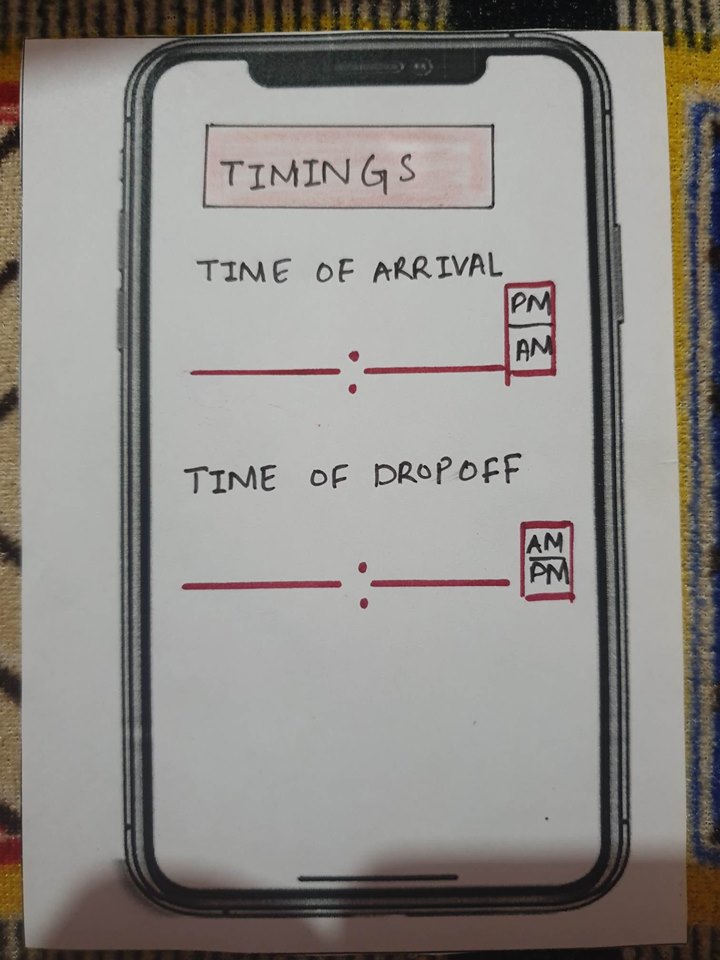 TIMINGS
TIME OF ARRIVAL
PM
AM
:
TIME OF DROPOFF
AM
PM
: